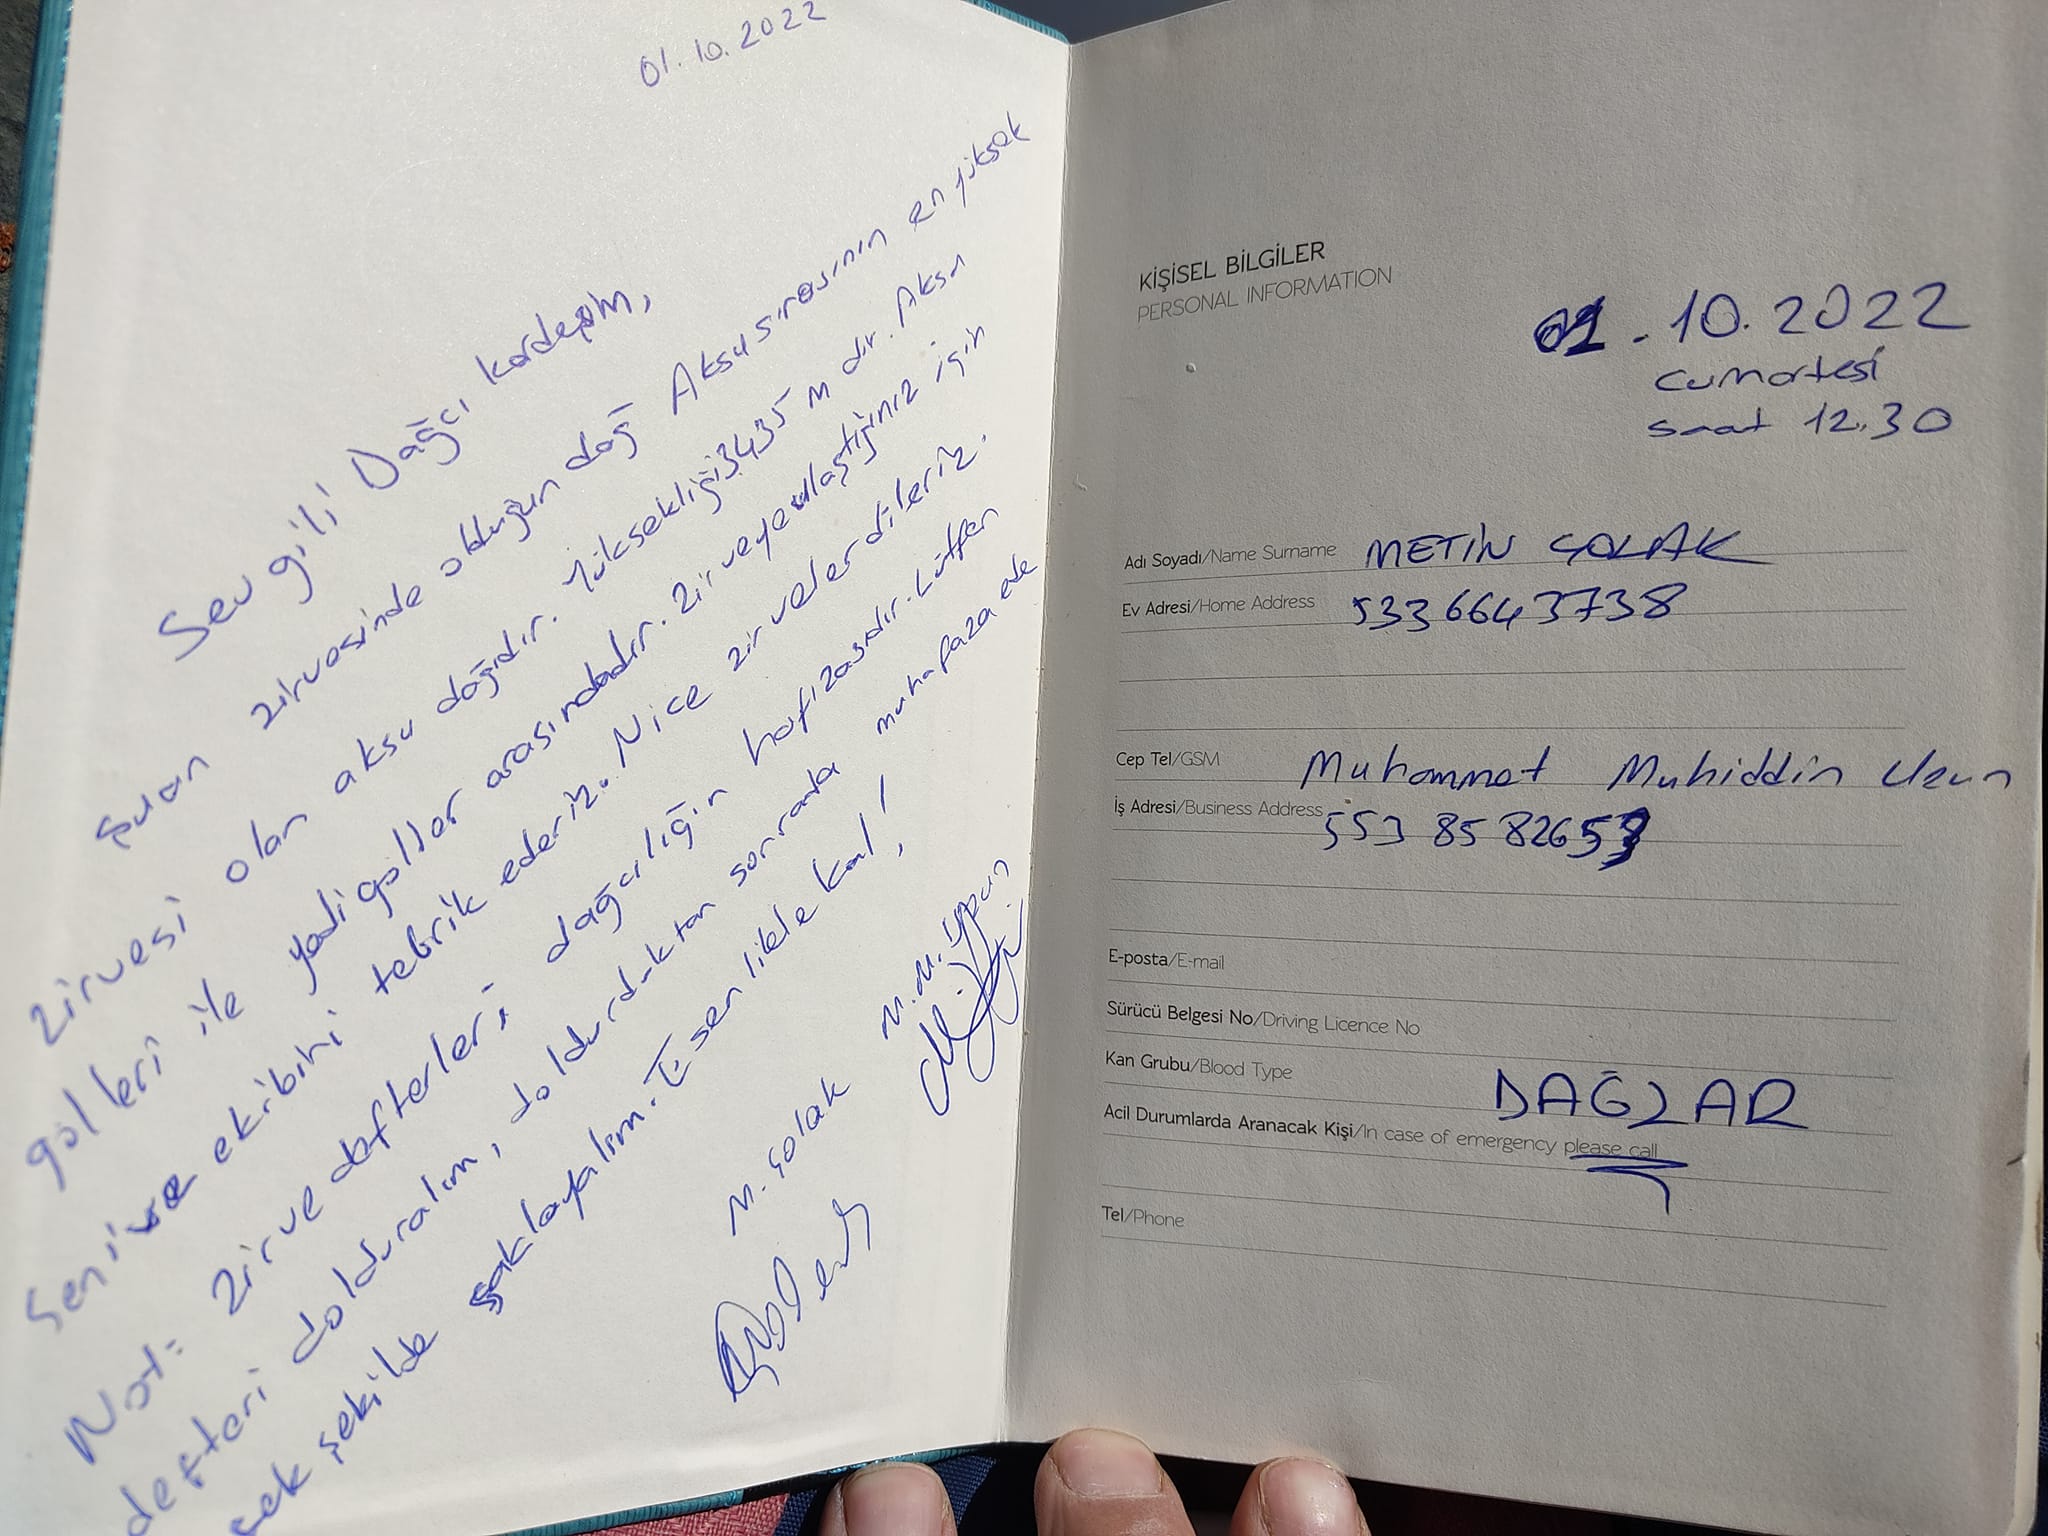 01.10.2022
Sevgili Dağcı kardeşim,
şuan zirvesinde olduğun dağ Aksu sırasının en yüksek
zirvesi olan aksu dağıdır. Yüksekliği 3435 m dır. Aksu
gölleri ile yedigöller arasındadır. Zirveye ulaştığınız için
Seni ve ekibini tebrik ederiz. Nice zirveler dileriz.
Not: Zirve defterleri dağcılığın hafızasıdır. Lütfen
defteri dolduralım, doldurduktan sonrada muhafaza ede
cek şekilde saklayalım. Esenlikle kal!
M. Çolak
M.M.
KİŞİSEL BİLGİLER
PERSONAL INFORMATION
01.10.2022
Cumartesi
saat 12.30
Adı Soyadı/Name Surname METİN ÇOLAK
Ev Adresi/Home Address 5336643738
Cep Tel/GSM Muhammet Muhiddin
İş Adresi/Business Address 553 8582653
E-posta/E-mail
Sürücü Belgesi No/Driving Licence No
Kan Grubu/Blood Type
DAĞLAR
Acil Durumlarda Aranacak Kişi/In case of emergency please call
Tel/Phone